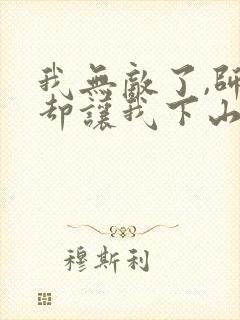 我無敵了,師
却讓我下山
穆斯利